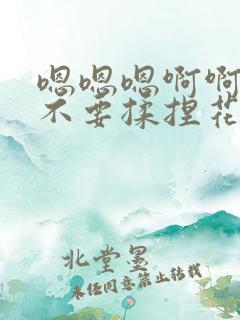 嗯嗯嗯啊啊
不要揉捏花
北堂墨
未经同意禁止转载